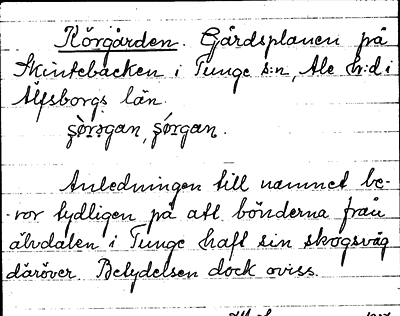 Körgården. Gårdsplanen på
Skintebacken i Tunge s:n, Ale h:d i
Älfsborgs län.
ʂö̀rɔgan, ʂö́rgan.
Anledningen till namnet be-
ror tydligen på att bönderna från
älvdalen i Tunge haft sin skogsväg
däröver. Betydelsen dock oviss.